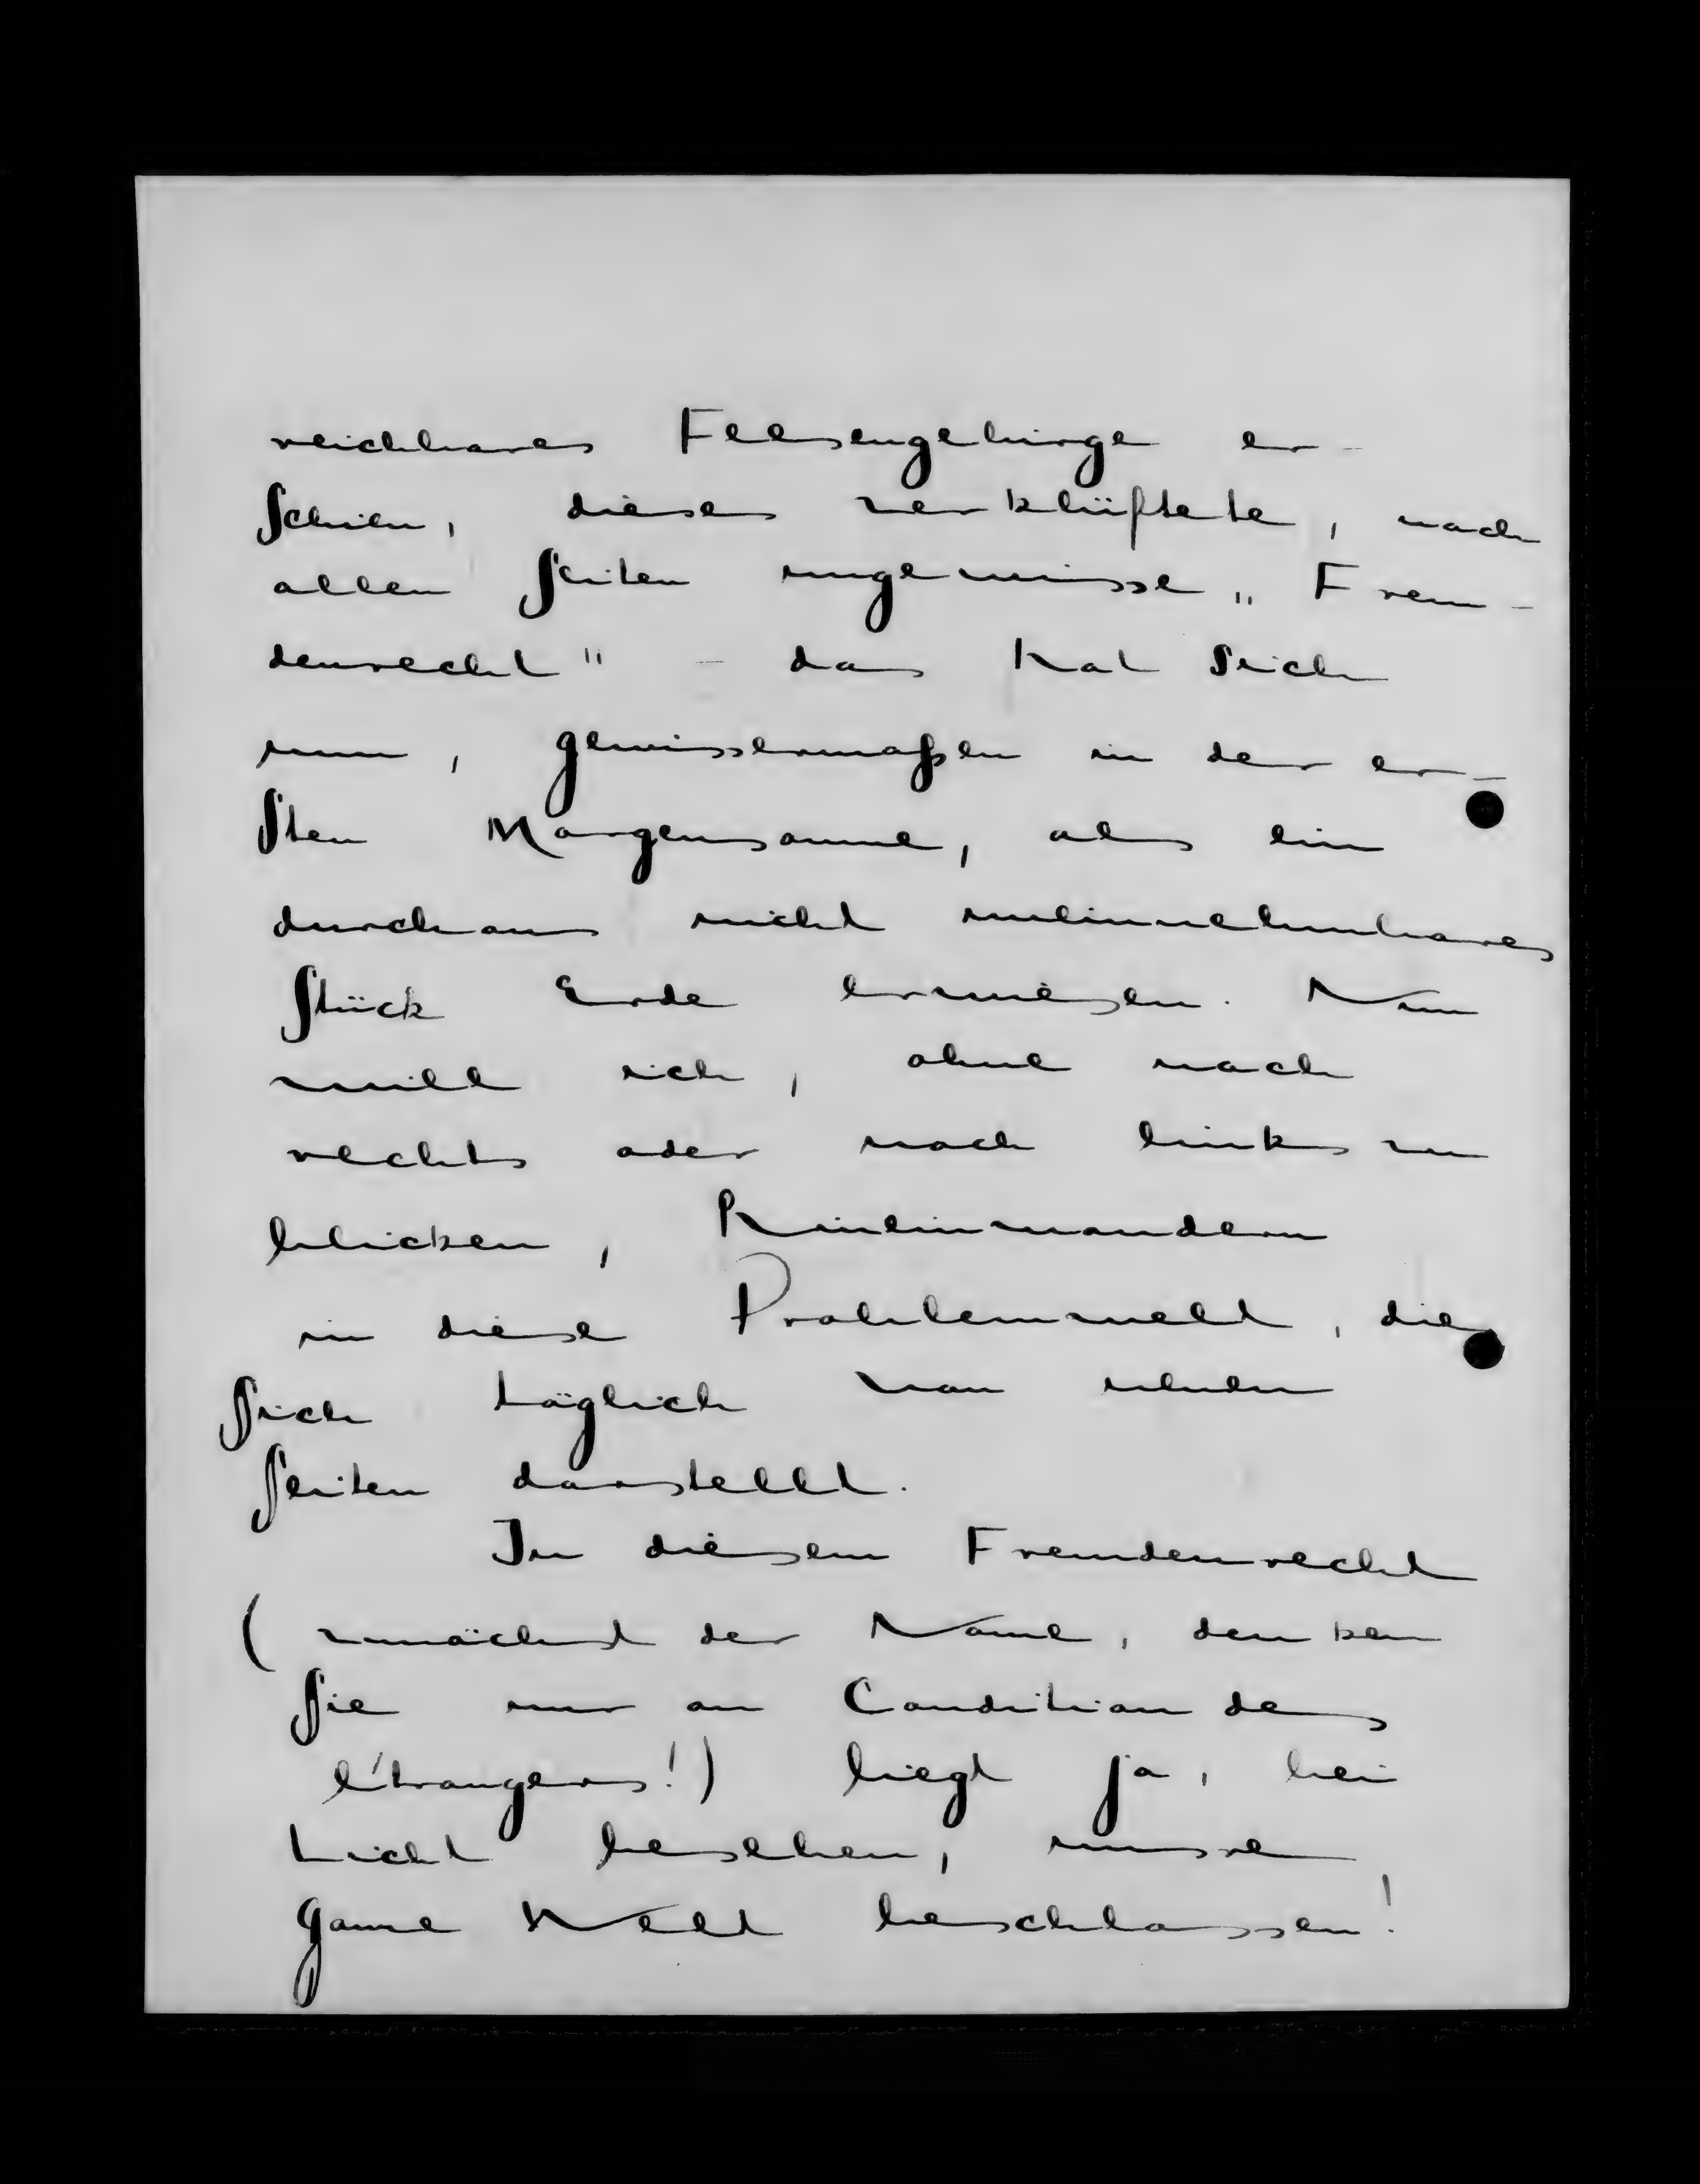 reichbares Felsengebirge er-
schien, dieses zerklüftete, nach
allen Seiten ungewisse „Frem-
denrecht" - das hat sich
nun, gewissermaßen in der er-
sten Morgensonne, als ein
durchaus nicht uneinnehmbares
Stück Erde erwiesen. Nun
will ich, ohne nach
rechts oder nach links zu
blicken, hineinwandern
in diese Problemwelt, die
sich täglich von neuen
Seiten darstellt.
In diesem Fremdenrecht
(zunächst der Name, denken
Sie nur an Condition des
étrangers!) liegt ja, bei
Licht besehen, unsre
ganze Welt beschlossen!